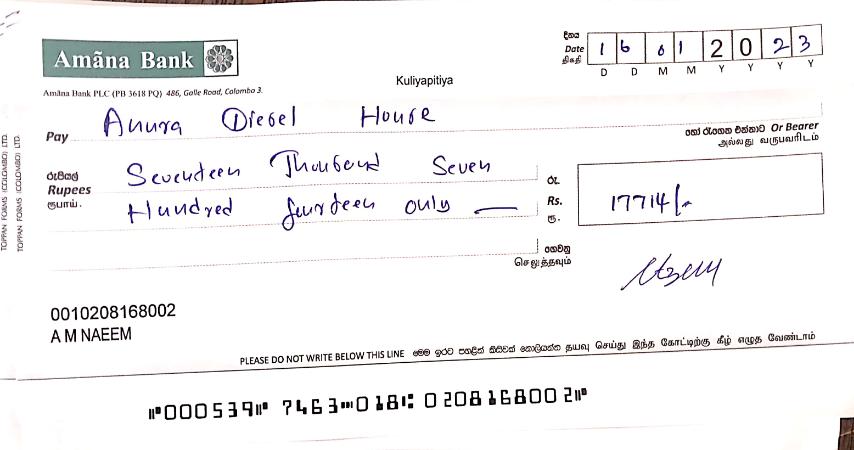 Amāna Bank
දිනය
Date
திகதி
1 6 0 1 2 0 2 3
D D M M Y Y Y Y
Kuliyapitiya
Amāna Bank PLC (PB 3618 PQ) 486, Galle Road, Colombo 3.
Pay Anura Diesel House
හෝ රැගෙන එන්නාට Or Bearer
அல்லது வருபவரிடம்
රුපියල්
Rupees
ரூபாய்.
Seventeen Thousend Seven
Hundred fourteen only —
රු.
Rs.
ரூ.
17714/-
ගෙවනු
செலுத்தவும்
0010208168002
A M NAEEM
PLEASE DO NOT WRITE BELOW THIS LINE මෙම ඉරට පහළින් කිසිවක් නොලියන්න தயவு செய்து இந்த கோட்டிற்கு கீழ் எழுத வேண்டாம்
⑈000539⑈ 7463⑉018⑆ 0208168002⑈
TOPPAN FORMS (COLOMBO) LTD.
TOPPAN FORMS (COLOMBO) LTD.